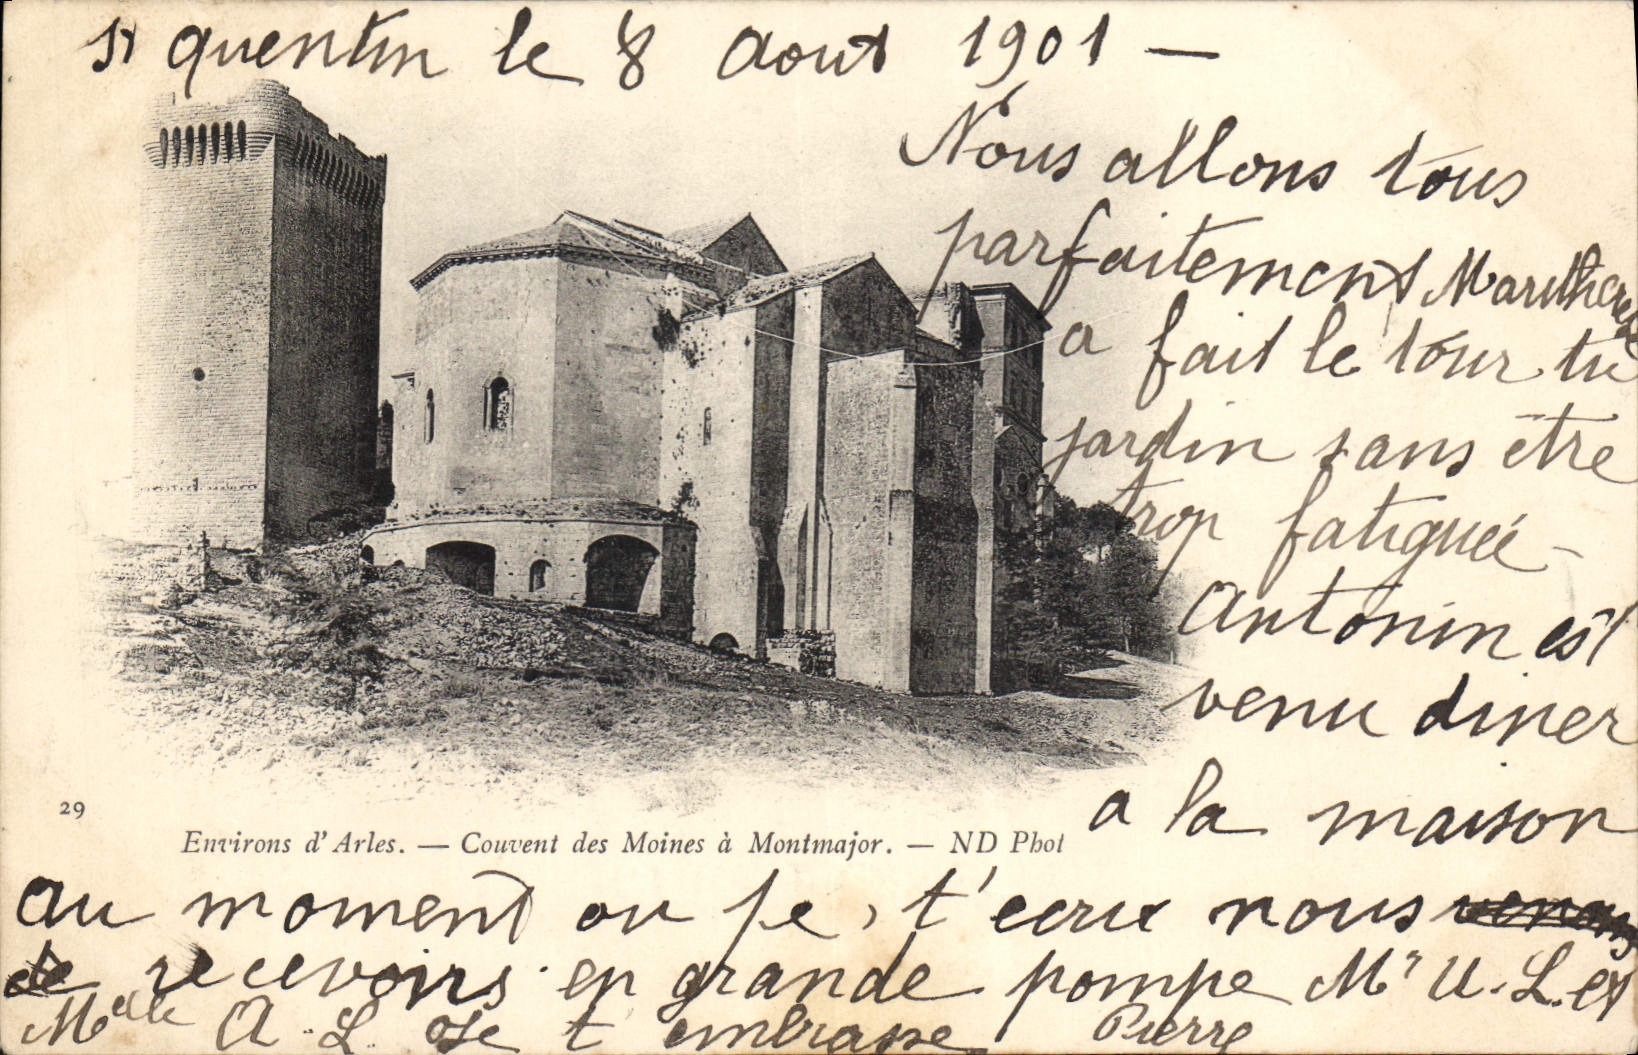 St quentin le 8 aout 1901 —
Nous allons tous
parfaitement
a fait le tour tu
jardin sans être
trop fatiguée —
Antonin est
venu diner
a la maison
29
Environs d'Arles. — Couvent des Moines à Montmajor. — ND Phot
au moment ou je, t'ecris nous venons
de recevoirs en grande pompe Mr U. L. et
Melle A. L. Je t embrasse Pierre